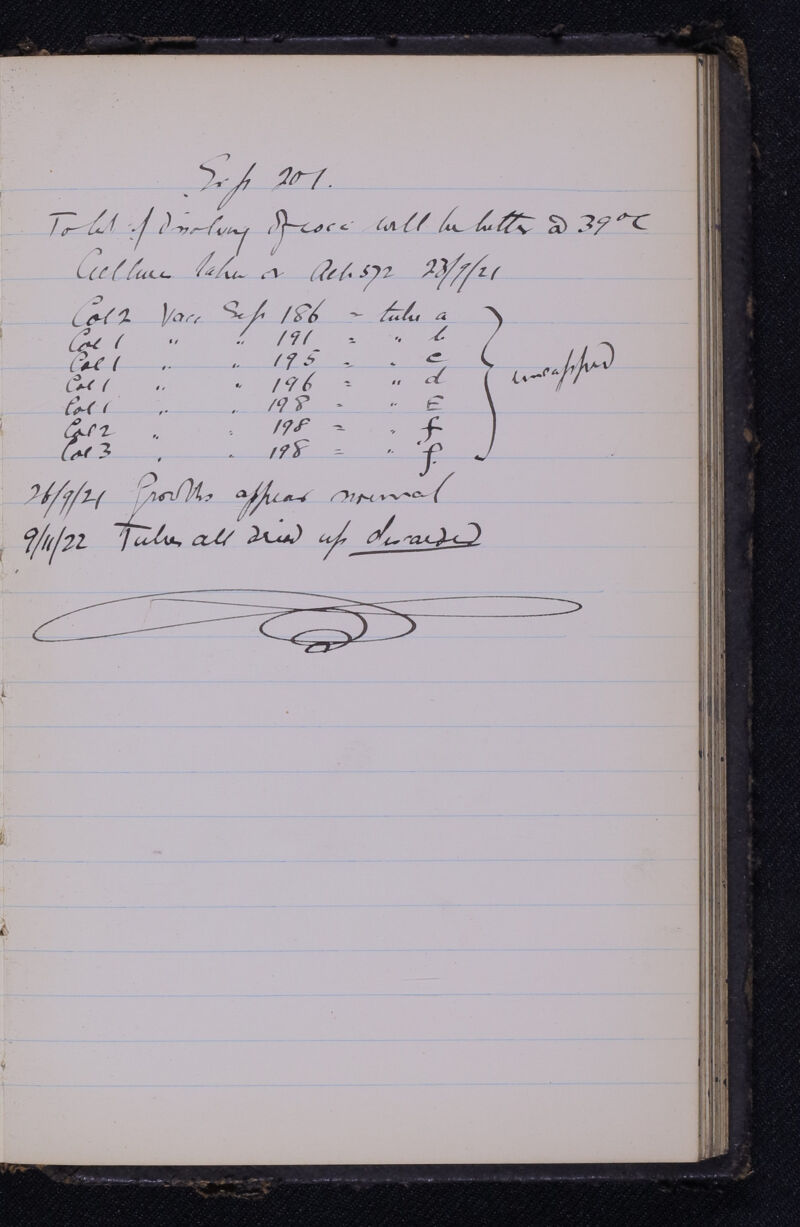 Exp 201.
To test if dissolving of cocci will be better @ 39°C
Cultures taken on Agar 572 23/9/21
Col 2 Vacc Exp 186 = tube a
Col 1 " " 191 = " b
Col 1 " " 195 = " c
Col 1 " " 196 = " d
Col 1 " " 198 = " E
Col 2 " " 198 = " f
Col 3 " " 198 = " f.
uncapped
26/9/21 Growths appear normal
9/11/22 Tubes all dried up discarded